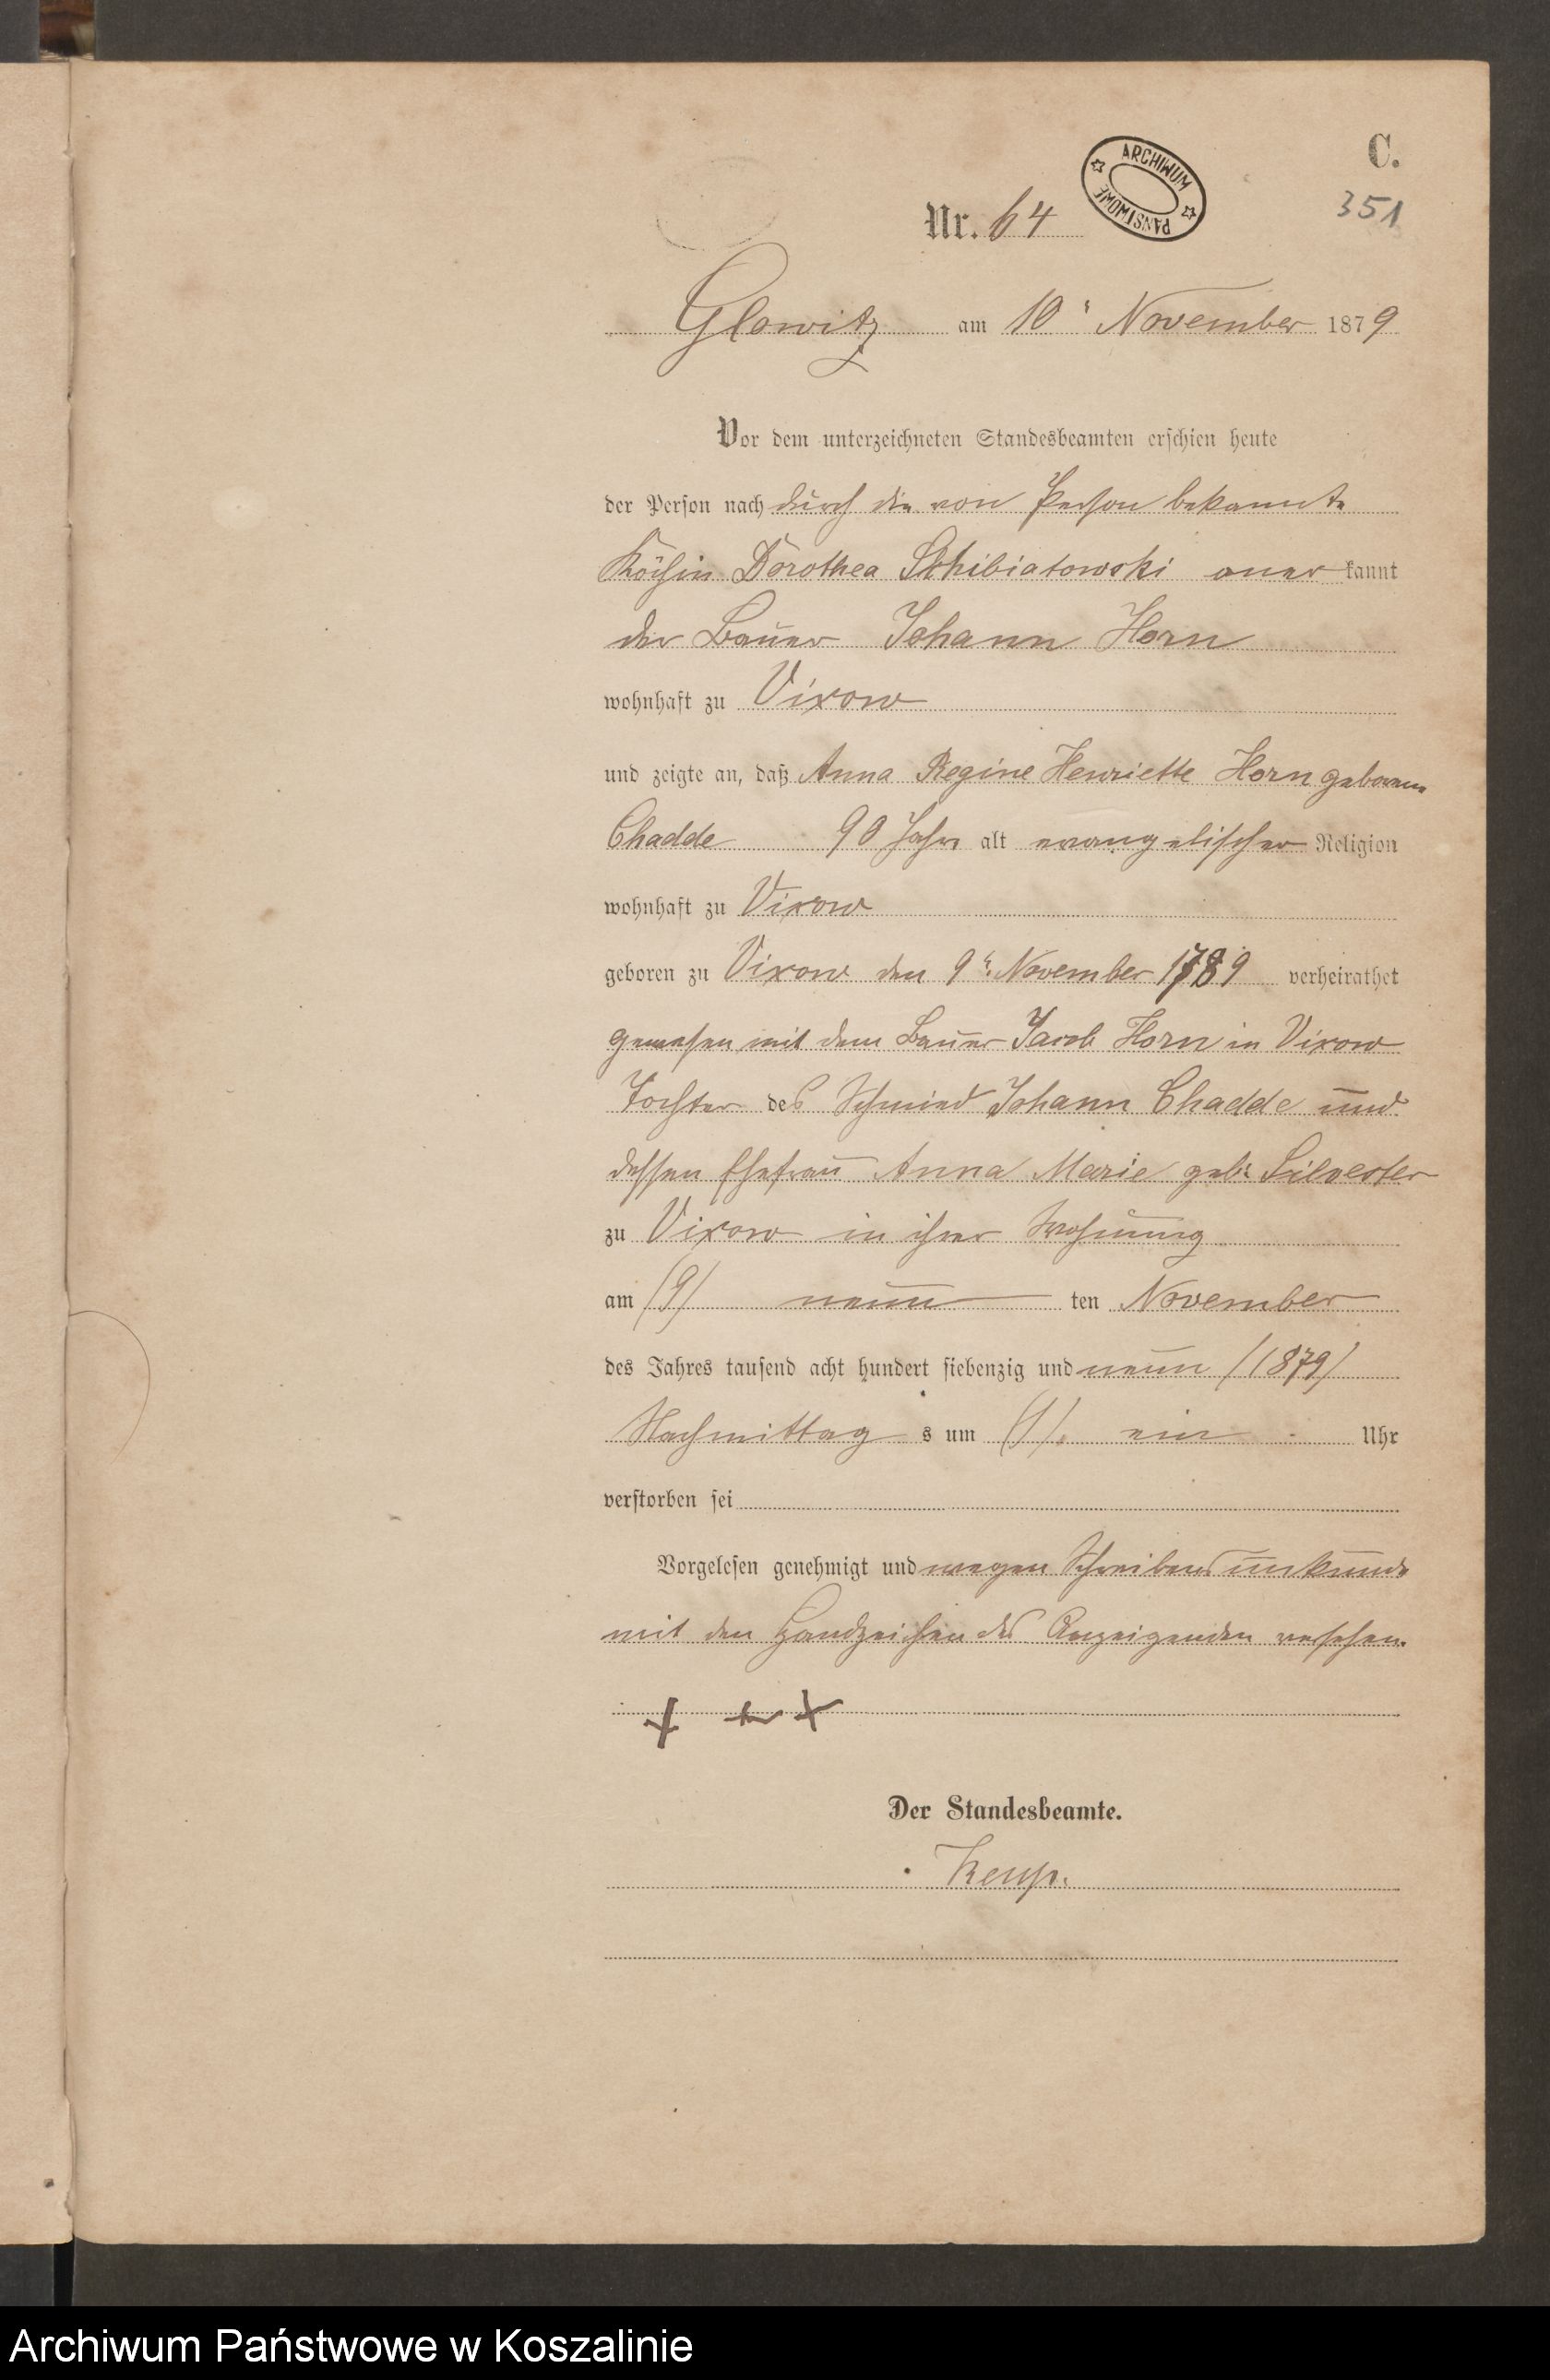 C.
351
ARCHIWUM PAŃSTWOWE
Nr. 64
Glowitz am 10t November 1879
Vor dem unterzeichneten Standesbeamten erschien heute
der Person nach durch die von Person bekannte
Köchin Dorothea Schibiatowski anerkannt
der Bauer Johann Horn
wohnhaft zu Vixow
und zeigte an, daß Anna Regine Henriette Horn geborene
Chadde 90 Jahre alt evangelischer Religion
wohnhaft zu Vixow
geboren zu Vixow den 9t. November 1789 verheirathet
gewesen mit dem Bauer Jacob Horn in Vixow
Tochter des Schmied Johann Chadde und
dessen Ehefrau Anna Marie geb: Silvester
zu Vixow in ihrer Wohnung
am /9/ neun ten November
des Jahres tausend acht hundert siebenzig und neun /1879/
Nachmittag s um /1/. ein Uhr
verstorben sei
Vorgelesen genehmigt und wegen Schreibensunkunde
mit den Handzeichen des Anzeigenden versehen.
+ + +
Der Standesbeamte.
Archiwum Państwowe w Koszalinie